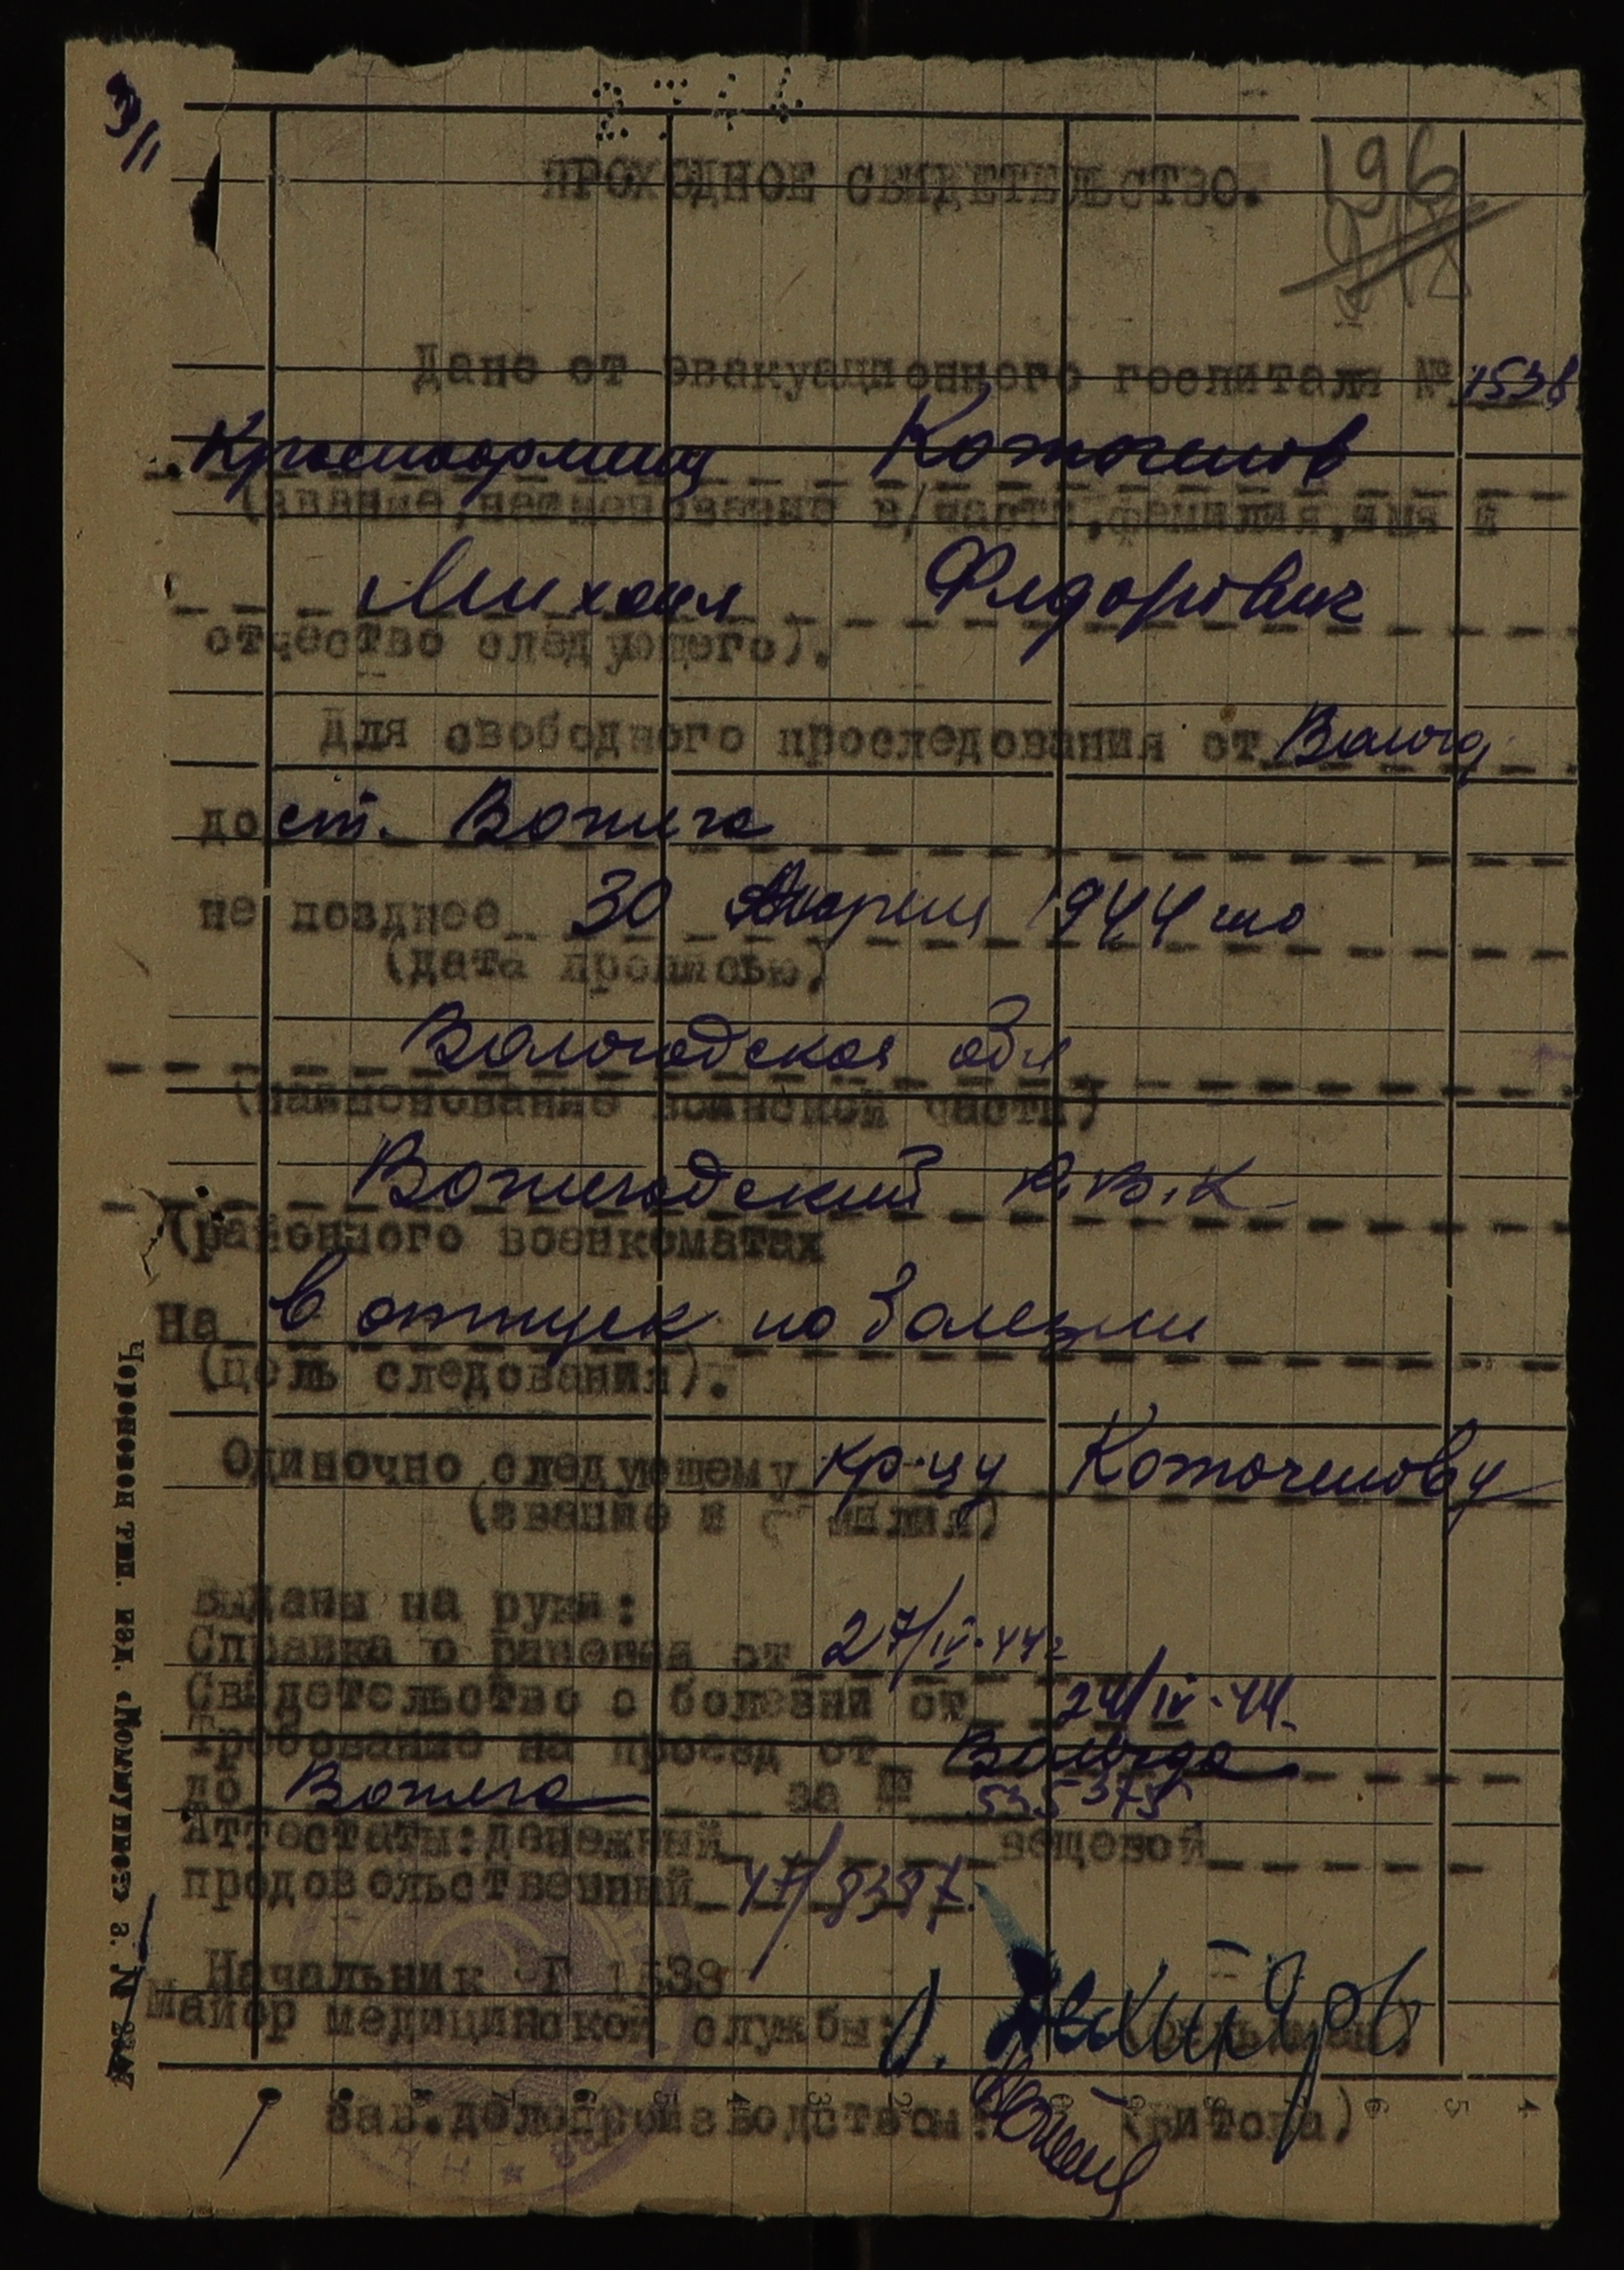 3/II
196
218
ПРОХОДНОЕ СВИДЕТЕЛЬСТВО.
Дано от эвакуационного госпиталя № 1538
Красноармеец Коточигов
(звание, наименование в/части, фамилия, имя и
Михаил Федорович
отчество следующего).
Для свободного проследования от Волог
до ст. Вожега
не позднее 30 Апреля 1944 го
(дата прописью)
Вологодская обл
(наименование воинской части)
Вожегодский Р.В.К.
(районного военкоматах
На в отпуск по болезни
(цель следования).
Одиночно следующему кр-цу
(звание и фамилия)
Выданы на руки:
Справка о ранении от 27/IV-44г
Свидетельство о болезни от 24/IV-44.
Требование на проезд от Вологда
до Вожега за № 535375
Аттестаты: денежный вещевой
продовольственный 47/8397.
Начальник ЭГ 1538
Майор медицинской службы:
Зав. делопроизводством: (Витова)
Череповец тип. изд. «Коммунист» з. №